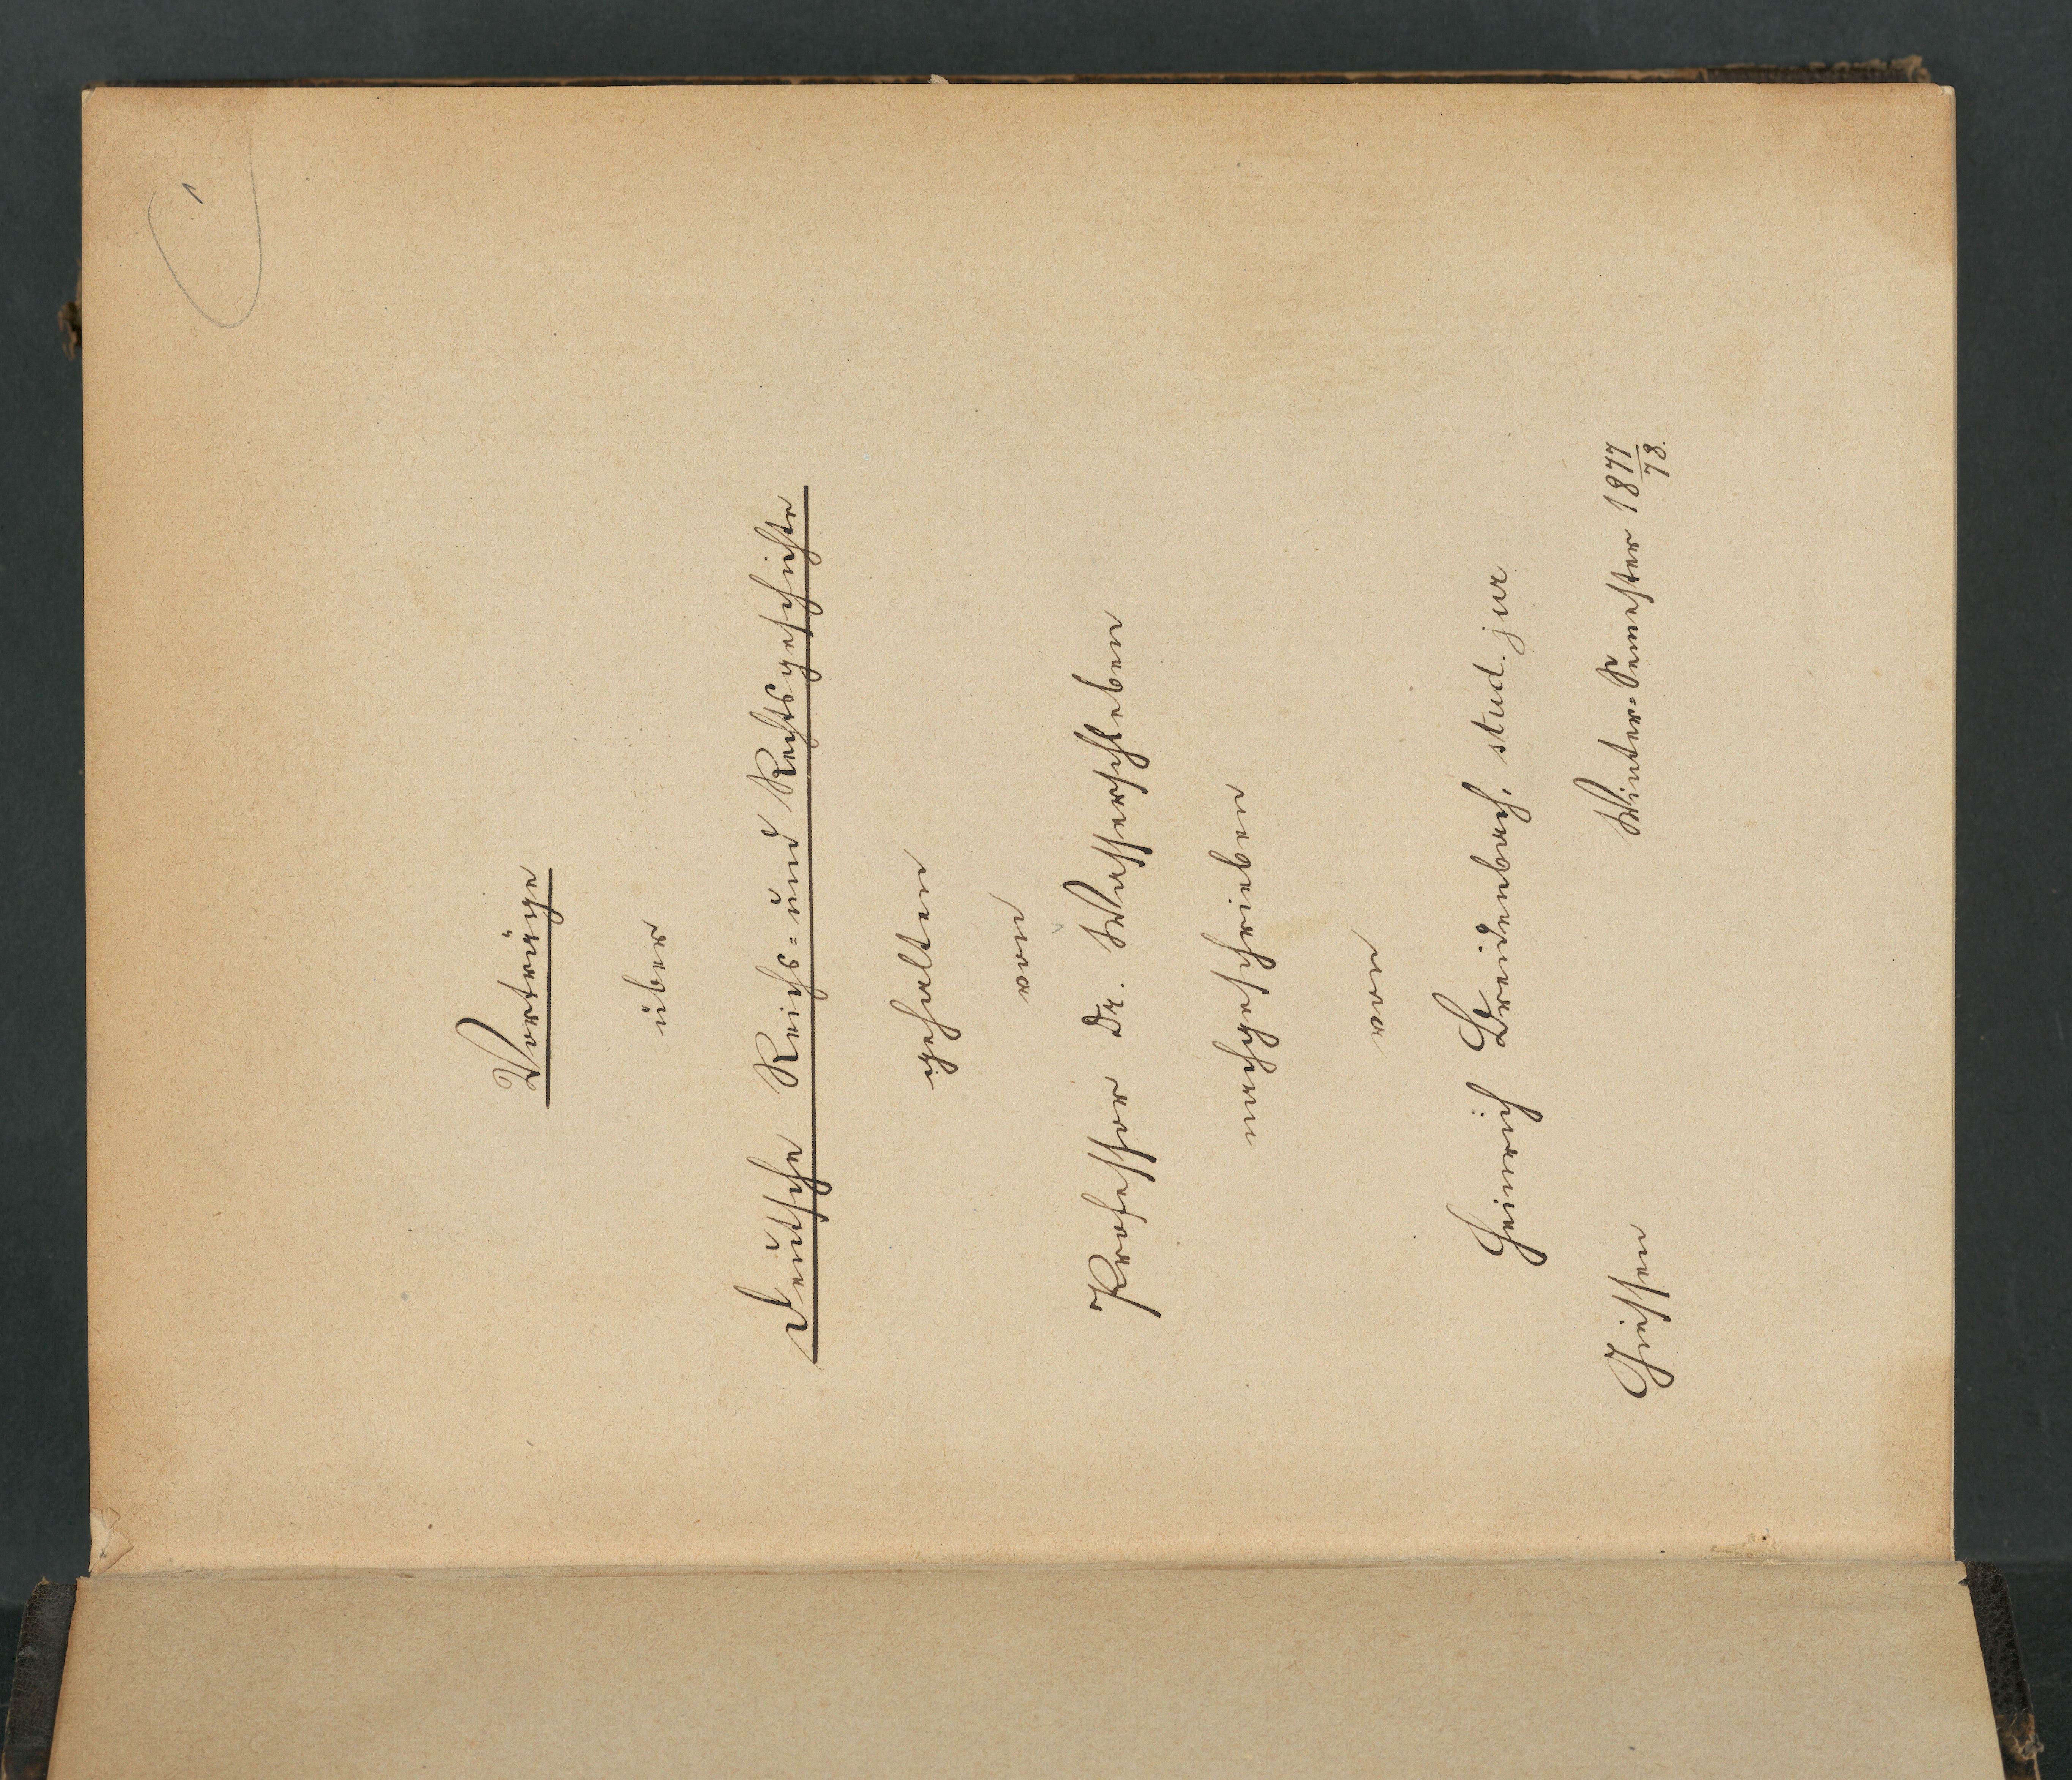 Vorträge
über
Deutsche Reichs- und Rechtsgeschichte
gehalten
von
Professor Dr. Wasserschleben
nachgeschrieben
von
Heinrich Breidenbach, stud. jur
Giessen Winter-Semester 1877/78.